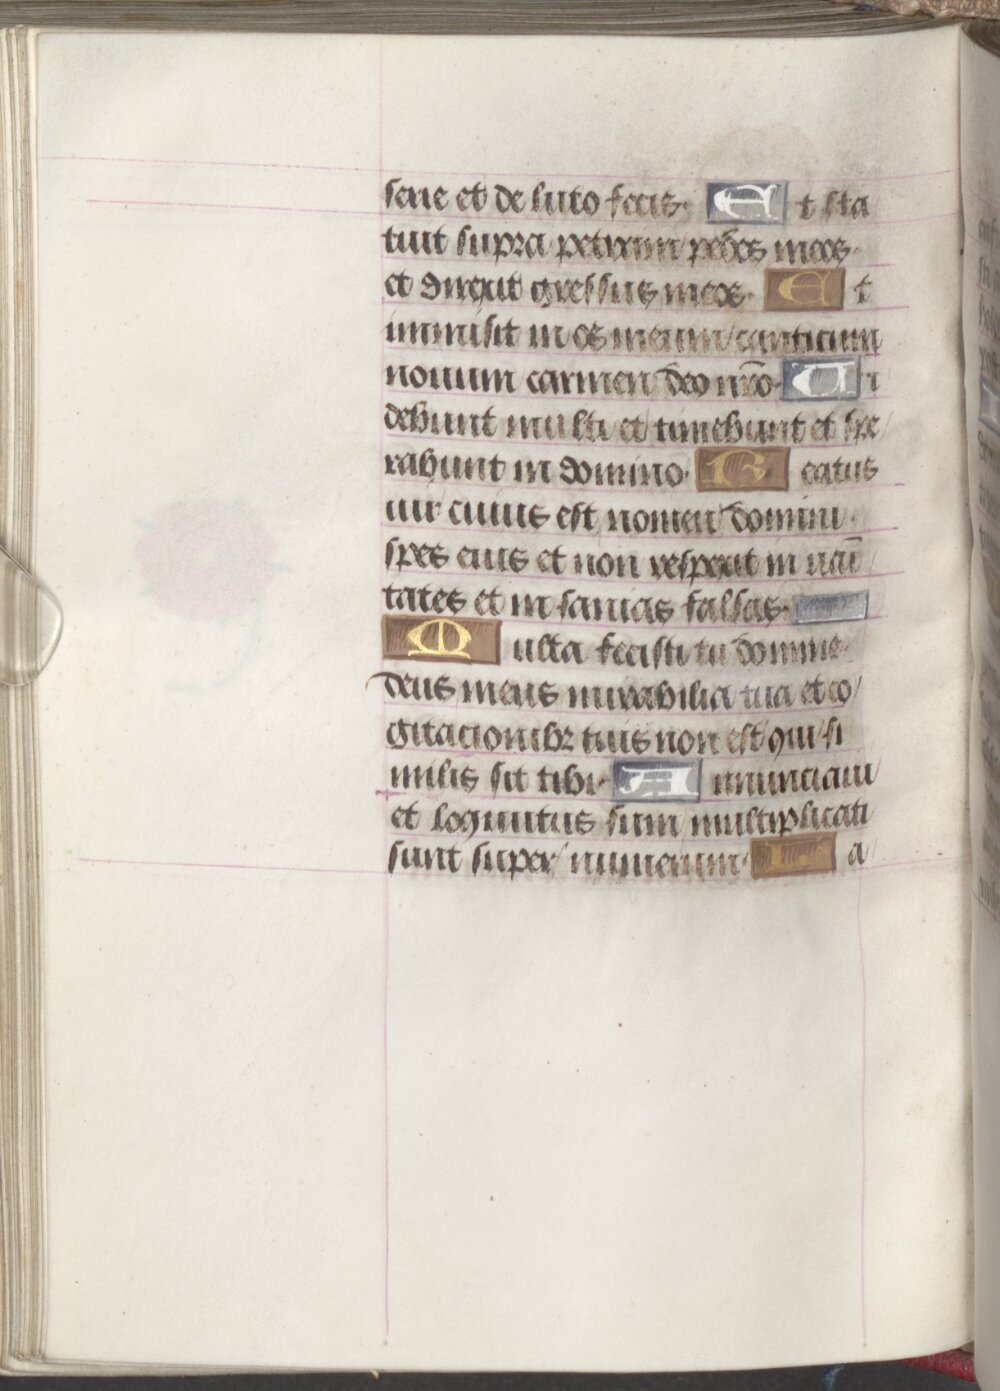 serie et de luto fecis. Et sta
tuit supra petram pedes meos.
et direxit gressus meos. Et
inmisit in os meum canticum
nouum carmen deo nr̄o. Ui
debunt multi et timebunt et spe
rabunt in domino. Beatus
uir cuius est nomen domini
spes eius et non respexit in uaī
tates et in sanias falsas.
Multa fecisti tu domine
deus meus mirabilia tua et co
gitacionibꝫ tuis non est qui si
milis sit tibi. Annunciaui
et loquutus sum multiplicati
sunt super numerum. a